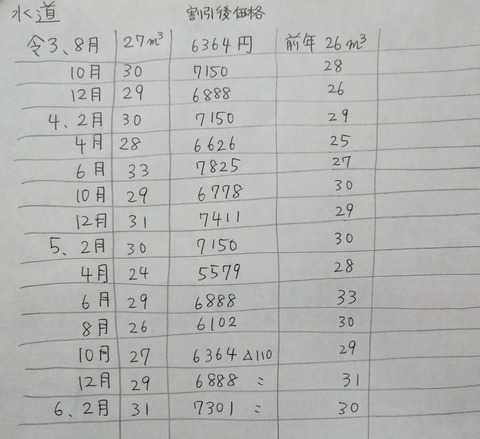 水道 割引後価格
令3、8月 27m³ 6364円 前年26m³
10月 30 7150 28
12月 29 6888 26
4、2月 30 7150 29
4月 28 6626 25
6月 33 7825 27
10月 29 6778 30
12月 31 7411 29
5、2月 30 7150 30
4月 24 5579 28
6月 29 6888 33
8月 26 6102 30
10月 27 6364 △110 29
12月 29 6888 〃 31
6、2月 31 7301 〃 30